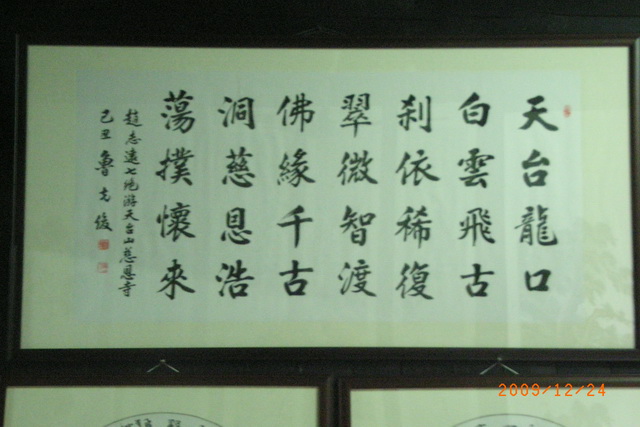 天台龍口
白雲飛古
刹依稀復
翠微智渡
佛緣千古
洞慈恩浩
蕩撲懷來
趙志遠七絕游天台山慈恩寺
己丑魯克俊
2009/12/24